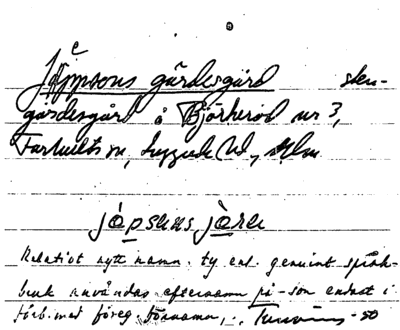 Jeppsons gärdesgård sten-
gärdesgård å Björkeröd nr 3,
Farhults sn, Luggude hd, Mlm
jäpsens järe
Relativt nytt namn, ty enl. genuint språk-
bruk användas efternamn på -son endast i
förb. med föreg. förnamn,